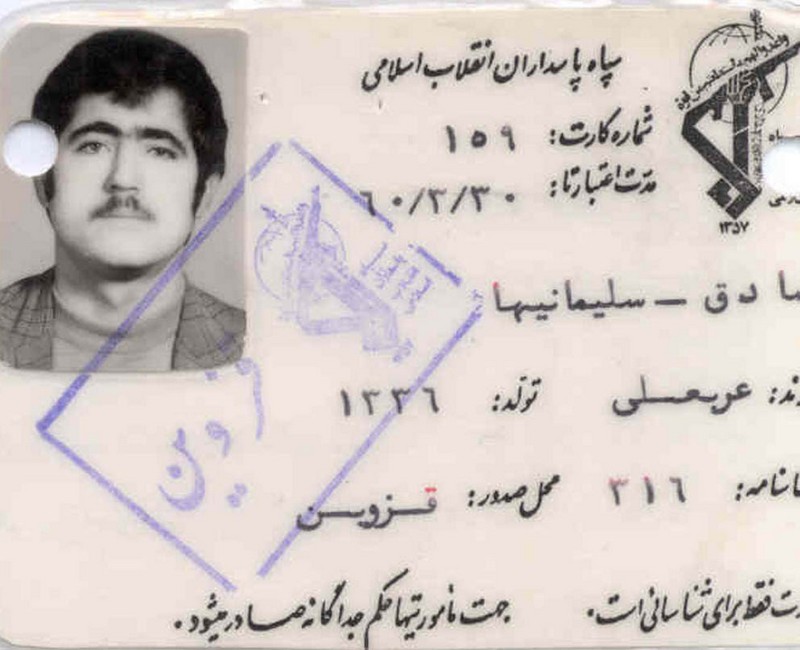 سپاه پاسداران انقلاب اسلامی
شماره کارت: ۱۵۹
مدت اعتبار تا: ۶۰/۳/۳۰
۱۳۵۷
صادق - سلیمانیها
عربعلی تولد: ۱۳۳۶
۳۱۶ محل صدور: قزوین
قزوین
فقط برای شناسائی است. جهت مأموریتها حکم جداگانه صادر میشود.